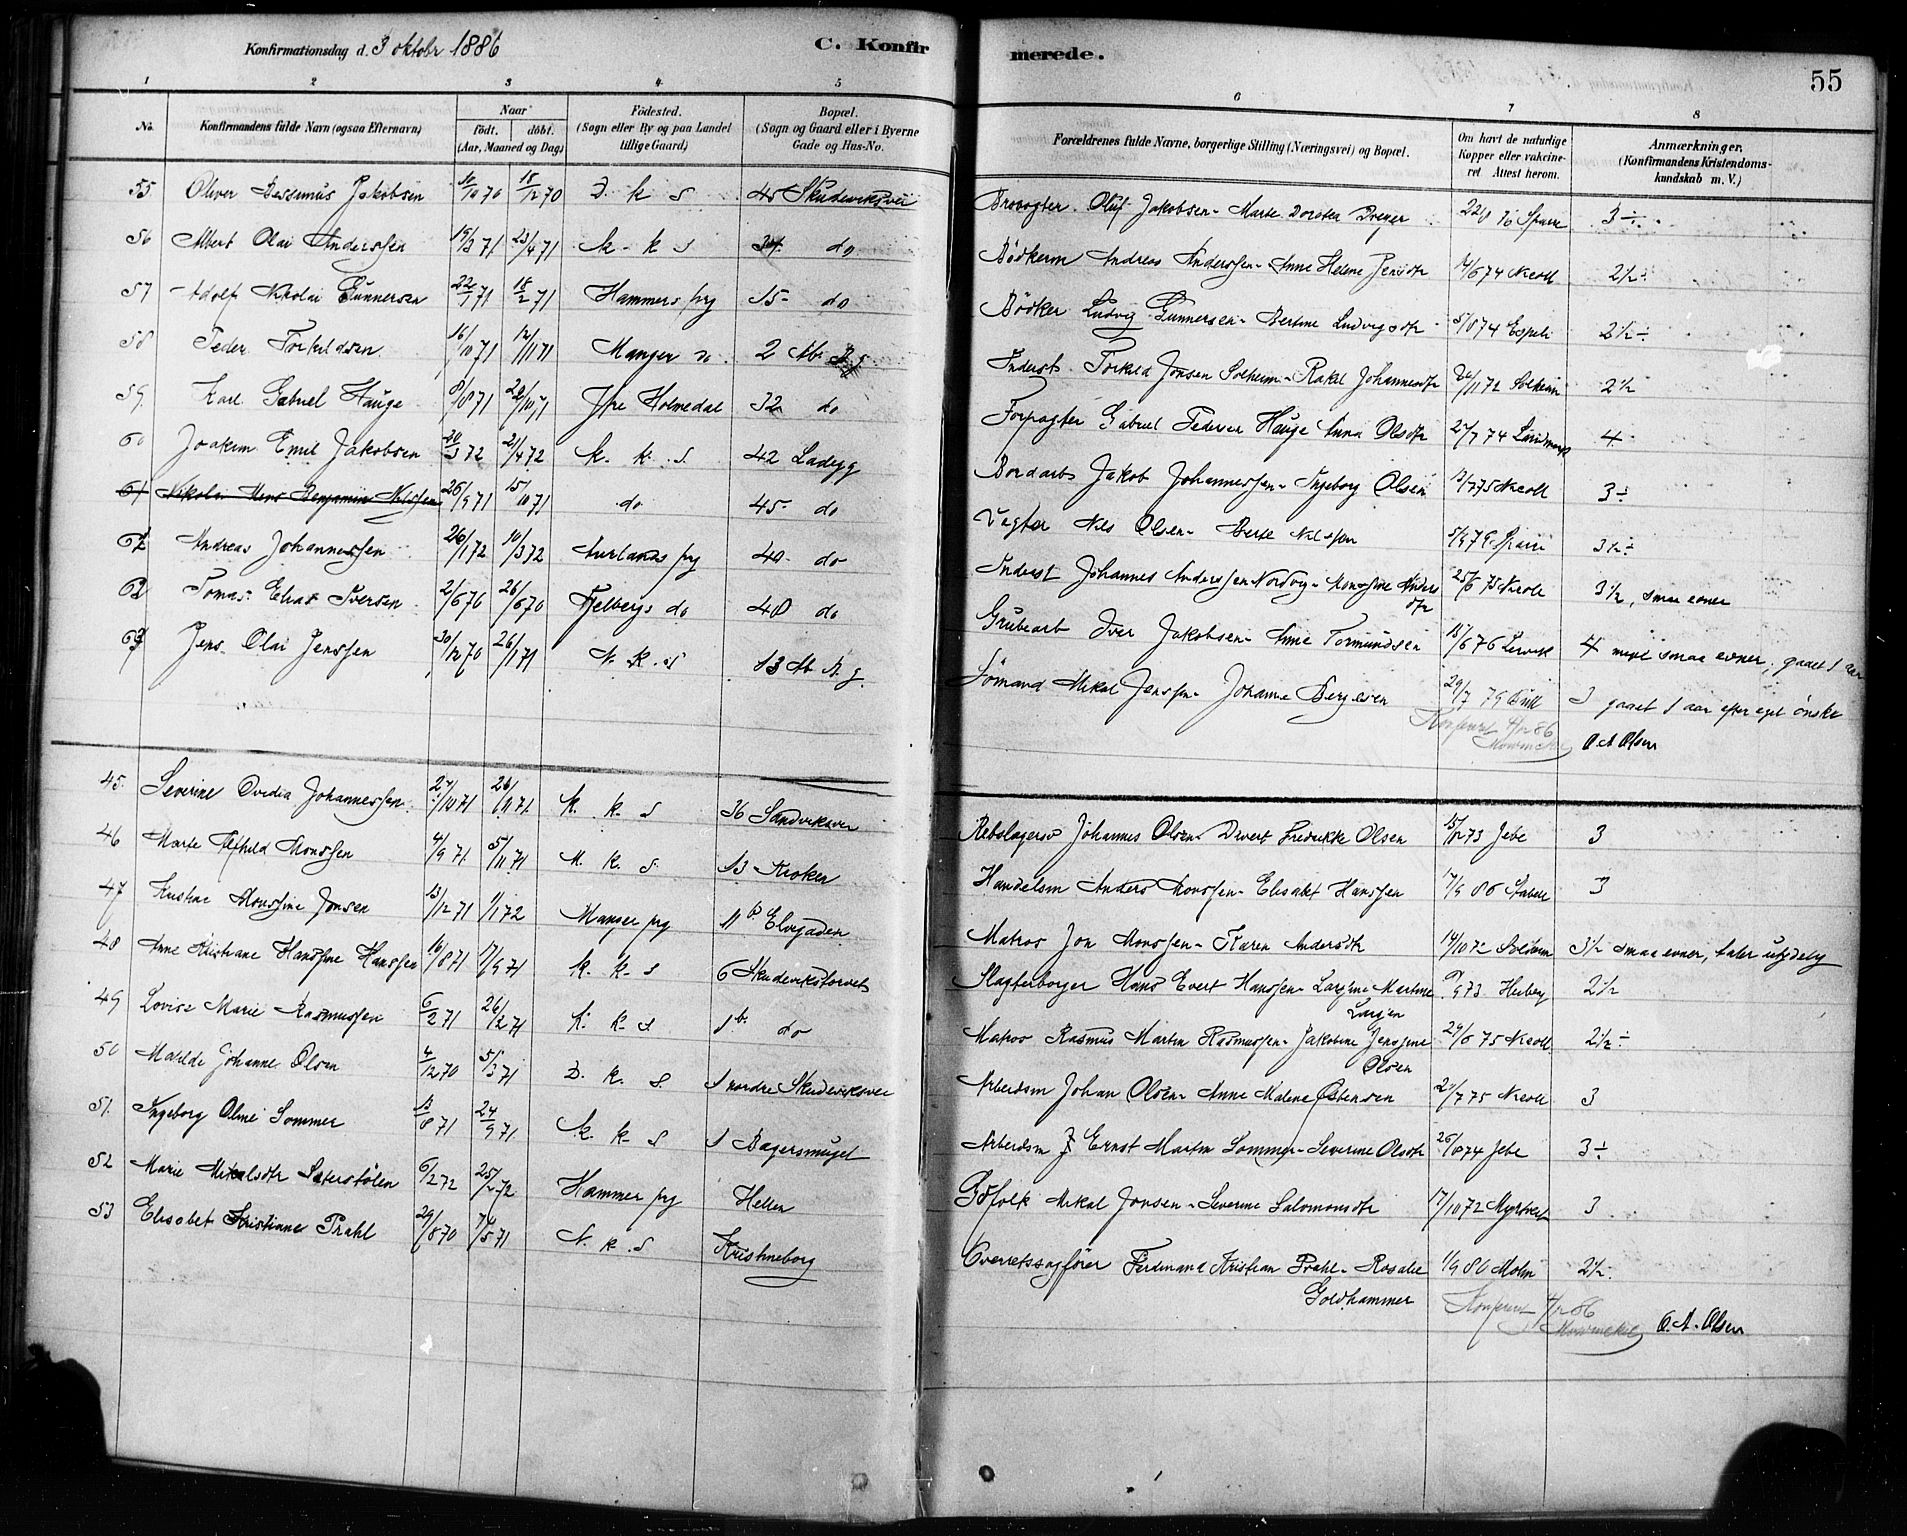 Konfirmationsdag d. 3 oktobr 1886
C. Konfirmerede.
55
1 2 3 4 5 6 7 8
No. Konfirmandens fulde Navn (ogsaa Efternavn) Naar født. døbt. (Aar, Maaned og Dag) Fødested. (Sogn eller By og paa Landet tillige Gaard) Bopæl. (Sogn og Gaard eller i Byerne Gade og Hus-No. Forældrenes fulde Navne, borgerlige Stilling (Næringsvei) og Bopæl. Om havt de naturlige Kopper eller vakcineret Attest herom. Anmærkninger. (Konfirmandens Kristendomskundskab m. V.)
55 Oliver Jakobsen 10/10 70 18/12 70 D k S 45 Skudeviksvei Oluf Jakobsen - Marte Dorotea Dreyer 3÷
56 Albert Olai Anderssen 19/3 71 23/4 71 k. k S do Bödkerm Andreas Anderssen - Anne Helene Jensdtr 4/6 74 Nicoll 2½÷
57 Adolf Nikolai Gunnersen 22/1 71 18/2 71 Hammers prg 15 do Bödker Ludvig Gunnersen - Bertine Ludvigsdtr 5/8 74 2½÷
58 Peder Torkildsen 16/10 71 12/11 71 Manger do 2 Inderst Torkild Jonsen Solheim - Rakel Johannesdtr 11 72 Solheim 2½
59 Karl Gabriel Hauge 8/8 71 29/10 71 Ytre Holmedal 32 do Forpagter Gabriel Pedersen Hauge Anna Olsdtr 27/7 74 4
60 Joakim Emil Jakobsen 20/3 72 21/4 72 k. k. S. 42 Ladegg Bordarb Jakob Johannessen - Ingeborg Olsen 12/7 75 Nicoll 3÷
61 Nikolai Mons Benjamin Nilssen 26/9 71 15/10 71 do 45 do Vegter Nils Olsen - Berte Nilssen 5/9 79 3½÷
62 Andreas Johannessen 26/1 72 10/3 72 Aurlands prg 40 do Inderst Johannes Anderssen Nordvig - Monsine Andersdtr 25/6 75 Nicoll 3½, smaa evner
62 Tomas Elias Iversen 2/6 70 26/6 70 Fjelbergs do 40 do Grubearb Iver Jakobsen - Anne Tormundsen 15/6 76 Lervik 4 meget smaa evner, gaaet 1 aar
63 Jens Olai Jenssen 30/12 70 26/1 71 N. k. S 13 Sömand Mikal Jenssen - Johanne Bergesen 29/7 79 3 gaaet 1 aar efter eget önske
86
O. A Olsen
45. Severine Ovedia Johannessen 27/10 71 26/11 71 k. k S 36 Sandviksvei Rebslagersv Johannes Olsen - Fredrikke Olsen 15/12 73 Jebe 3
46 Marte Monssen 4/9 71 5/11 71 N. k. S. 13 Kroken Handelsm Anders Monssen - Elisabet Hanssen 17/9 86 3
47 Kristine Monssine Jonsen 13/12 71 1/1 72 Manger prg 11b Elvegaden Matros Jon Monssen - Karen Andersdtr 14/10 72 Solheim 3½ smaa evner, taler utydelig
48 Anne Kristiane Hanssine Hanssen 16/8 71 17/9 71 k. k S 6 Skudevikstorvet Slagterborger Hans Evert Hanssen - Martine Larsen 9 73 Heiberg 2½
49 Lovise Marie Rasmussen 6/2 71 26/12 71 k. k S 1b. do Matros Rasmus Martin Rasmussen - Jakobine Jenssine Olsen 29/6 75 Nicoll 2½÷
50 Matilde Johanne Olsen 4/12 70 5/3 71 D. k. S. 1 nordre Skudeviksvei Arbeidsm Johan Olsen - Anne Malene Östensen 21/7 75 Nicoll 3
51. Ingeborg Oline Sommer 13/8 71 24/9 71 k. k S 1 Bagersmuget Arbeidsm J Ernst Martin Sommer - Severine Olsdtr 26/8 74 Jebe 3÷
52 Marie Mikalsdtr Sæterstölen 6/2 72 25/2 72 Hammer prg Hellen Gdfolk Mikal Jonsen - Severine Salomonsdtr 17/10 72 3
53 Elisabet Kristiane Prahl 29/8 70 7/5 71 N. k. S Kristineborg Overretssagförer Ferdinand Kristian Prahl - Rosalie Goldhammer 1/9 80 Mohn 2½
86
O. A. Olsen